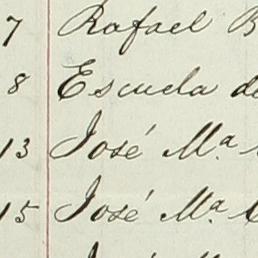 7 Rafael B
8 Escuela de
13 José Mª
15 José Mª